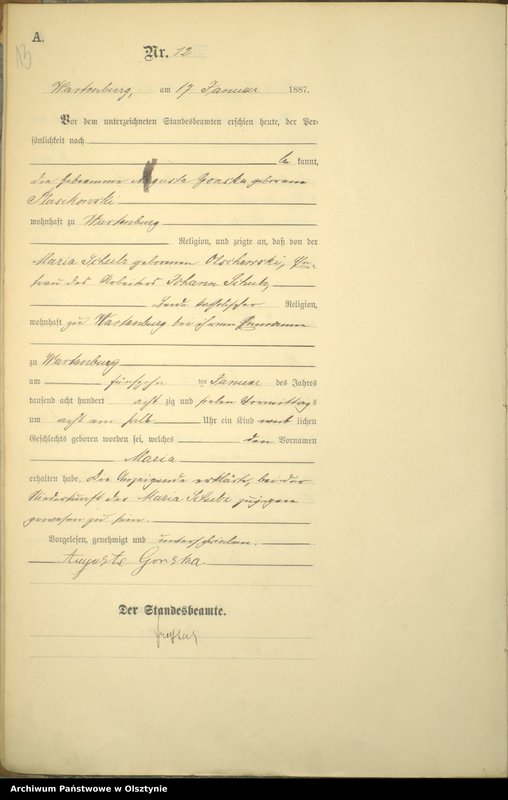 A.
13
Nr. 12
Wartenburg, am 17 Januar 1887.
Vor dem unterzeichneten Standesbeamten erschien heute, der Per-
sönlichkeit nach
be kannt,
die Hebeamme Auguste Gonska geborene
wohnhaft zu Wartenburg
Religion, und zeigte an, daß von der
Maria Schulz geborenen Olschewski, Ehe-
frau des Arbeiters Johann Schulz,
Beide katholischer Religion,
wohnhaft zu Wartenburg bei ihrem Ehemanne
zu Wartenburg
am fünfzehn ten Januar des Jahres
tausend acht hundert acht zig und sieben Vormittags
um acht ein halb Uhr ein Kind weib lichen
Geschlechts geboren worden sei, welches den Vornamen
Maria
erhalten habe. Die Anzeigende erklärte, bei der
Niederkunft der Maria Schulz zugegen
gewesen zu sein.
Vorgelesen, genehmigt und unterschrieben.
Auguste Gonska.
Der Standesbeamte.
Archiwum Państwowe w Olsztynie